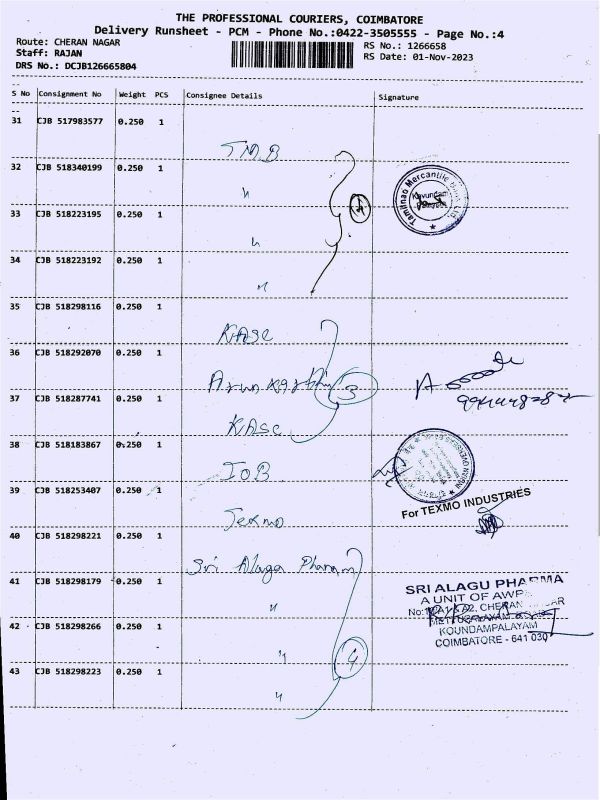 THE PROFESSIONAL COURIERS, COIMBATORE
Delivery Runsheet - PCM - Phone No.:0422-3505555 - Page No.:4
Route: CHERAN NAGAR
Staff: RAJAN
DRS No.: DCJB126665804
RS No.: 1266658
RS Date: 01-Nov-2023
S No Consignment No Weight PCS Consignee Details Signature
31 CJB 517983577 0.250 1 TMB
32 CJB 518340199 0.250 1 "
33 CJB 518223195 0.250 1 "
34 CJB 518223192 0.250 1 "
4
Tamilnad Mercantile Bank Ltd
35 CJB 518298116 0.250 1 KASC
36 CJB 518292070 0.250 1
37 CJB 518287741 0.250 1 KASC
3
38 CJB 518183867 0.250 1 IOB
39 CJB 518253407 0.250 1 Texmo
For TEXMO INDUSTRIES
40 CJB 518298221 0.250 1 Sri Alagu
41 CJB 518298179 0.250 1 "
42 CJB 518298266 0.250 1 "
43 CJB 518298223 0.250 1 "
4
SRI ALAGU PHARMA
A UNIT OF
CHERAN
KOUNDAMPALAYAM
COIMBATORE - 641 030